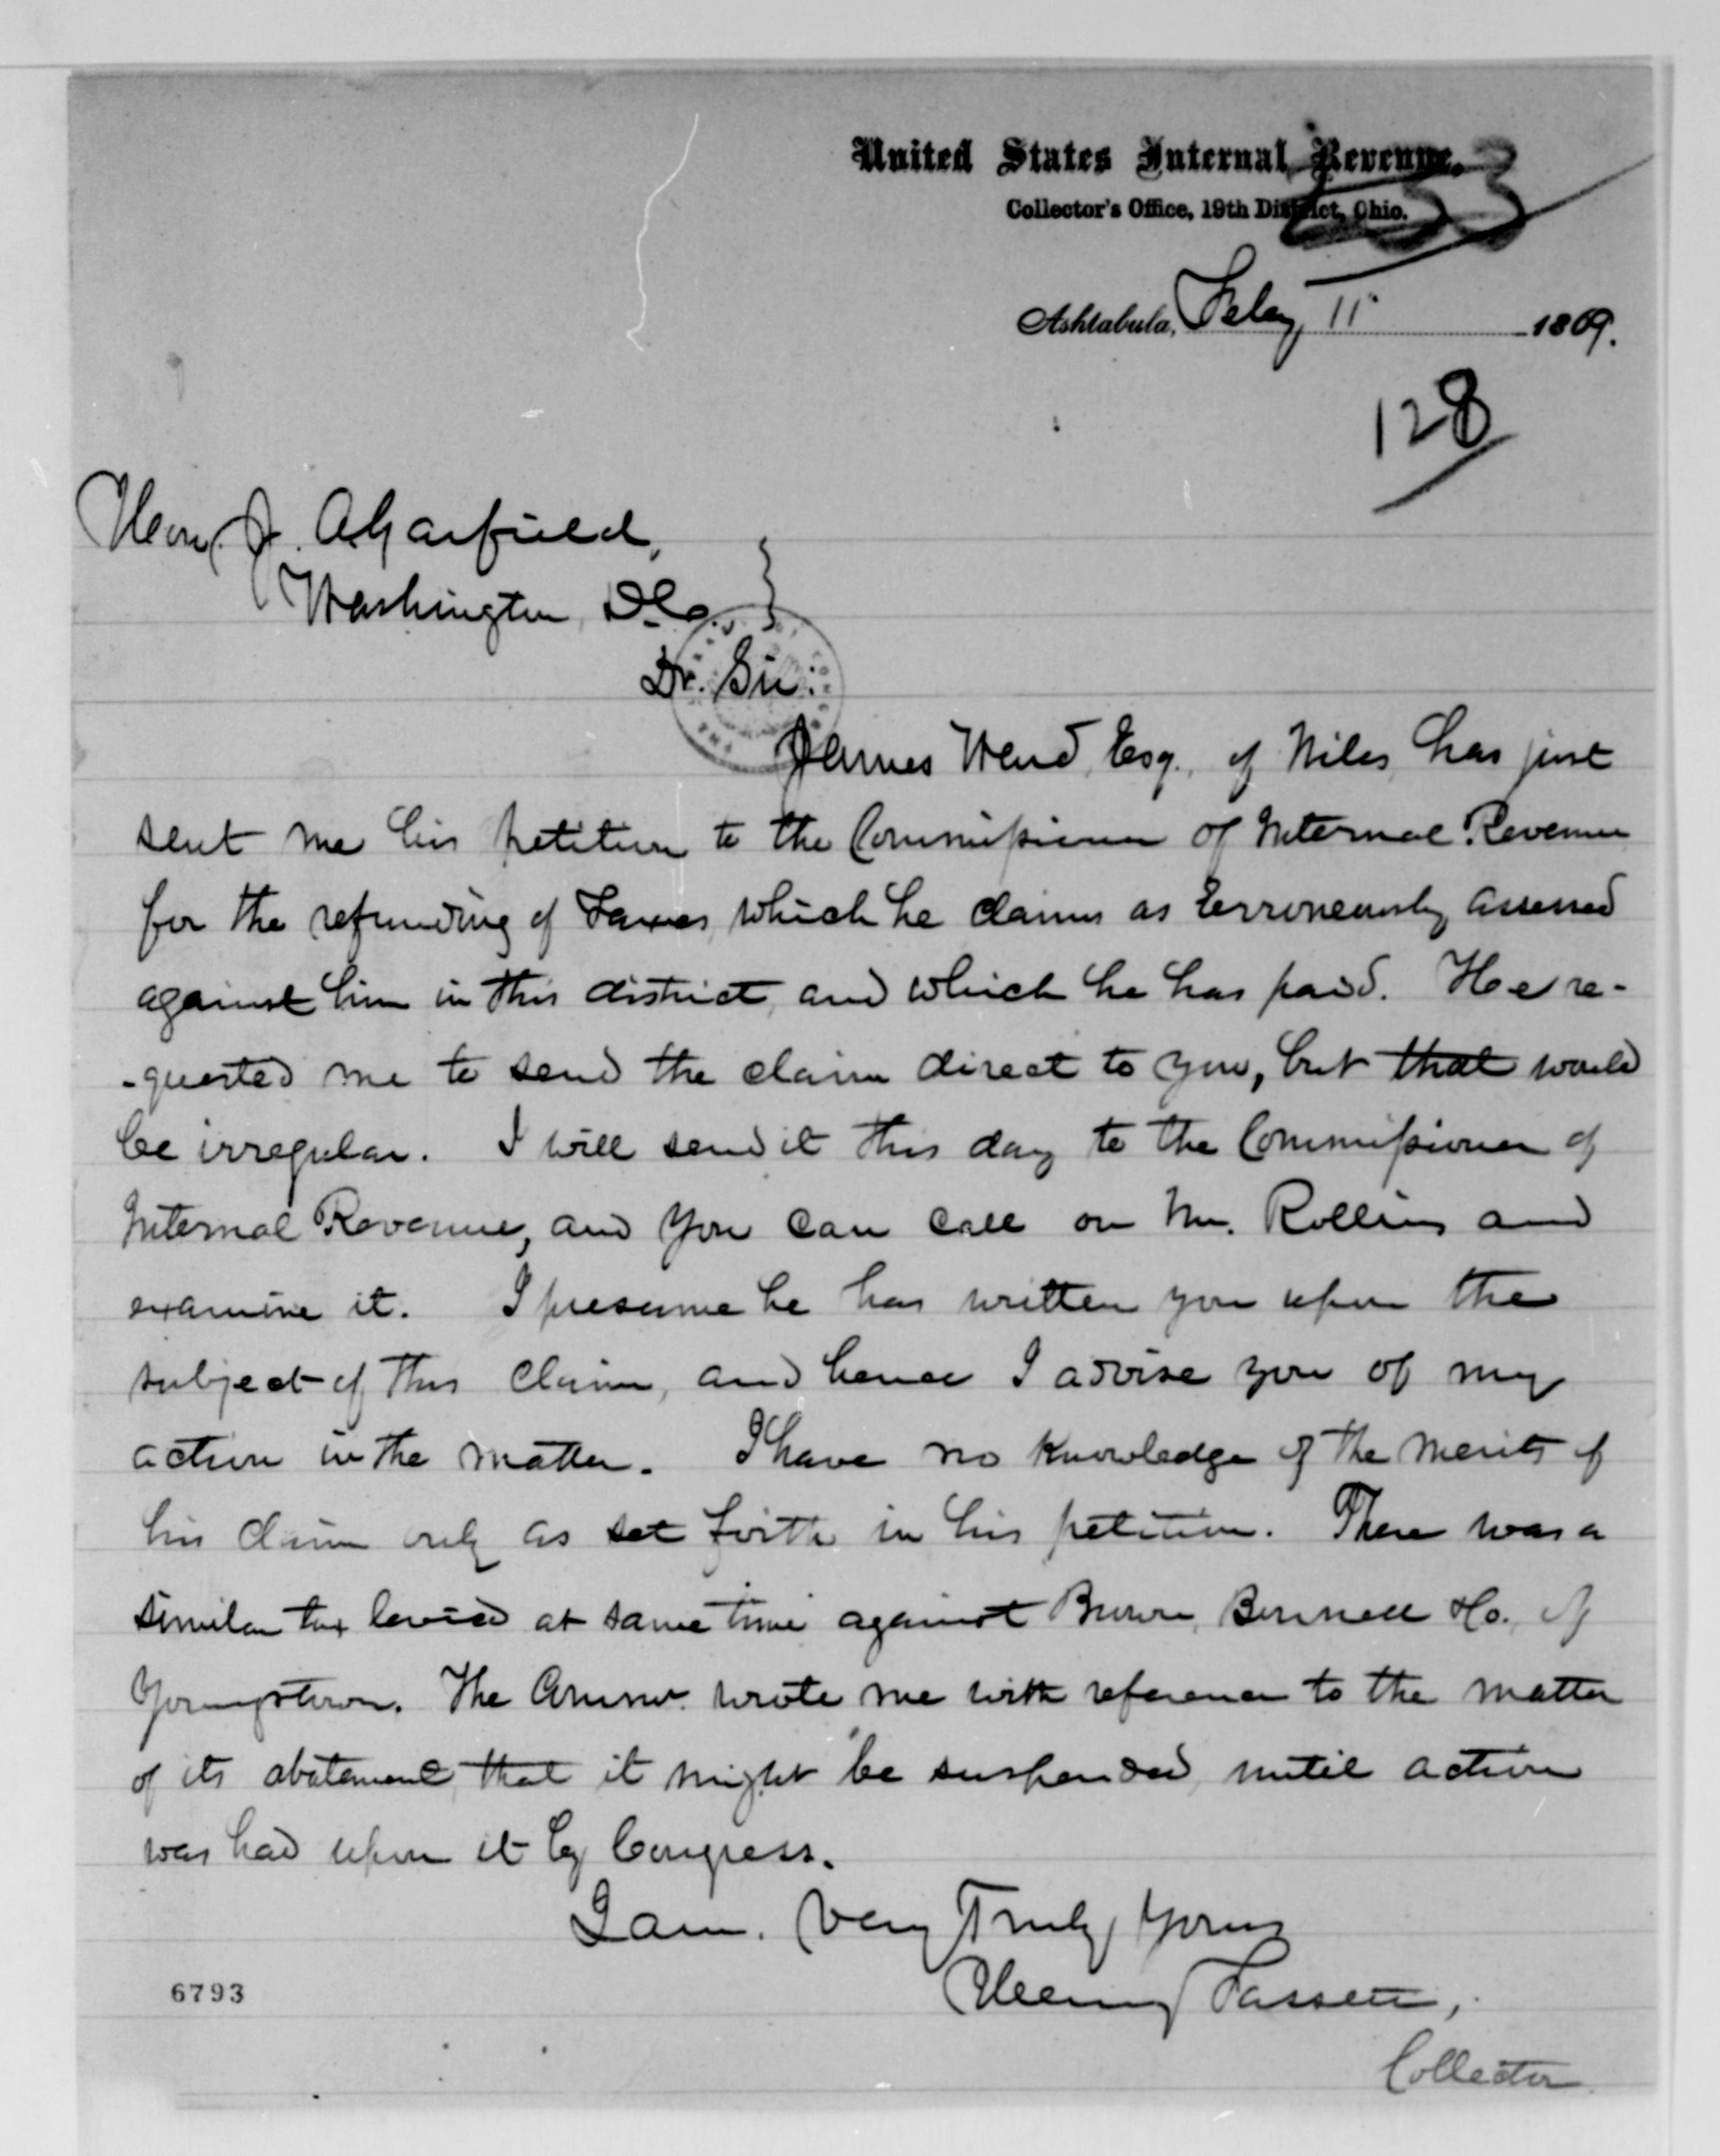 253
United States Internal Revenue.
Collector's Office, 19th District, Ohio.
Ashtabula, Feby 11 1869.
128
Hon. J. A. Garfield,
Washington, D.C. }
Dr. Sir:
James Ward, Esq., of Niles, has just
sent me his petition to the Commissioner of Internal Revenue
for the refunding of Taxes, which he claims as Erroneously assessed
against him in this district, and which he has paid. He re-
-quested me to send the claim direct to you, but that would
be irregular. I will send it this day to the Commissioner of
Internal Revenue, and you can call on Mr. Rollins and
examine it. I presume he has written you upon the
subject of this claim, and hence I advise you of my
action in the matter. I have no knowledge of the merits of
his claim only as set forth in his petition. There was a
similar tax levied at same time against Brown, Bonnell & Co., of
Youngstown. The Commr. wrote me with reference to the matter
of its abatement, that it might be suspended, until action
was had upon it by Congress.
I am, Very Truly Yours
Henry Fassett,
Collector
6793